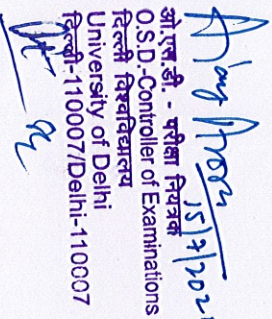 15/7/202
ओ.एस.डी. - परीक्षा नियंत्रक
O.S.D.-Controller of Examinations
दिल्ली विश्वविद्यालय
University of Delhi
दिल्ली-110007/Delhi-110007